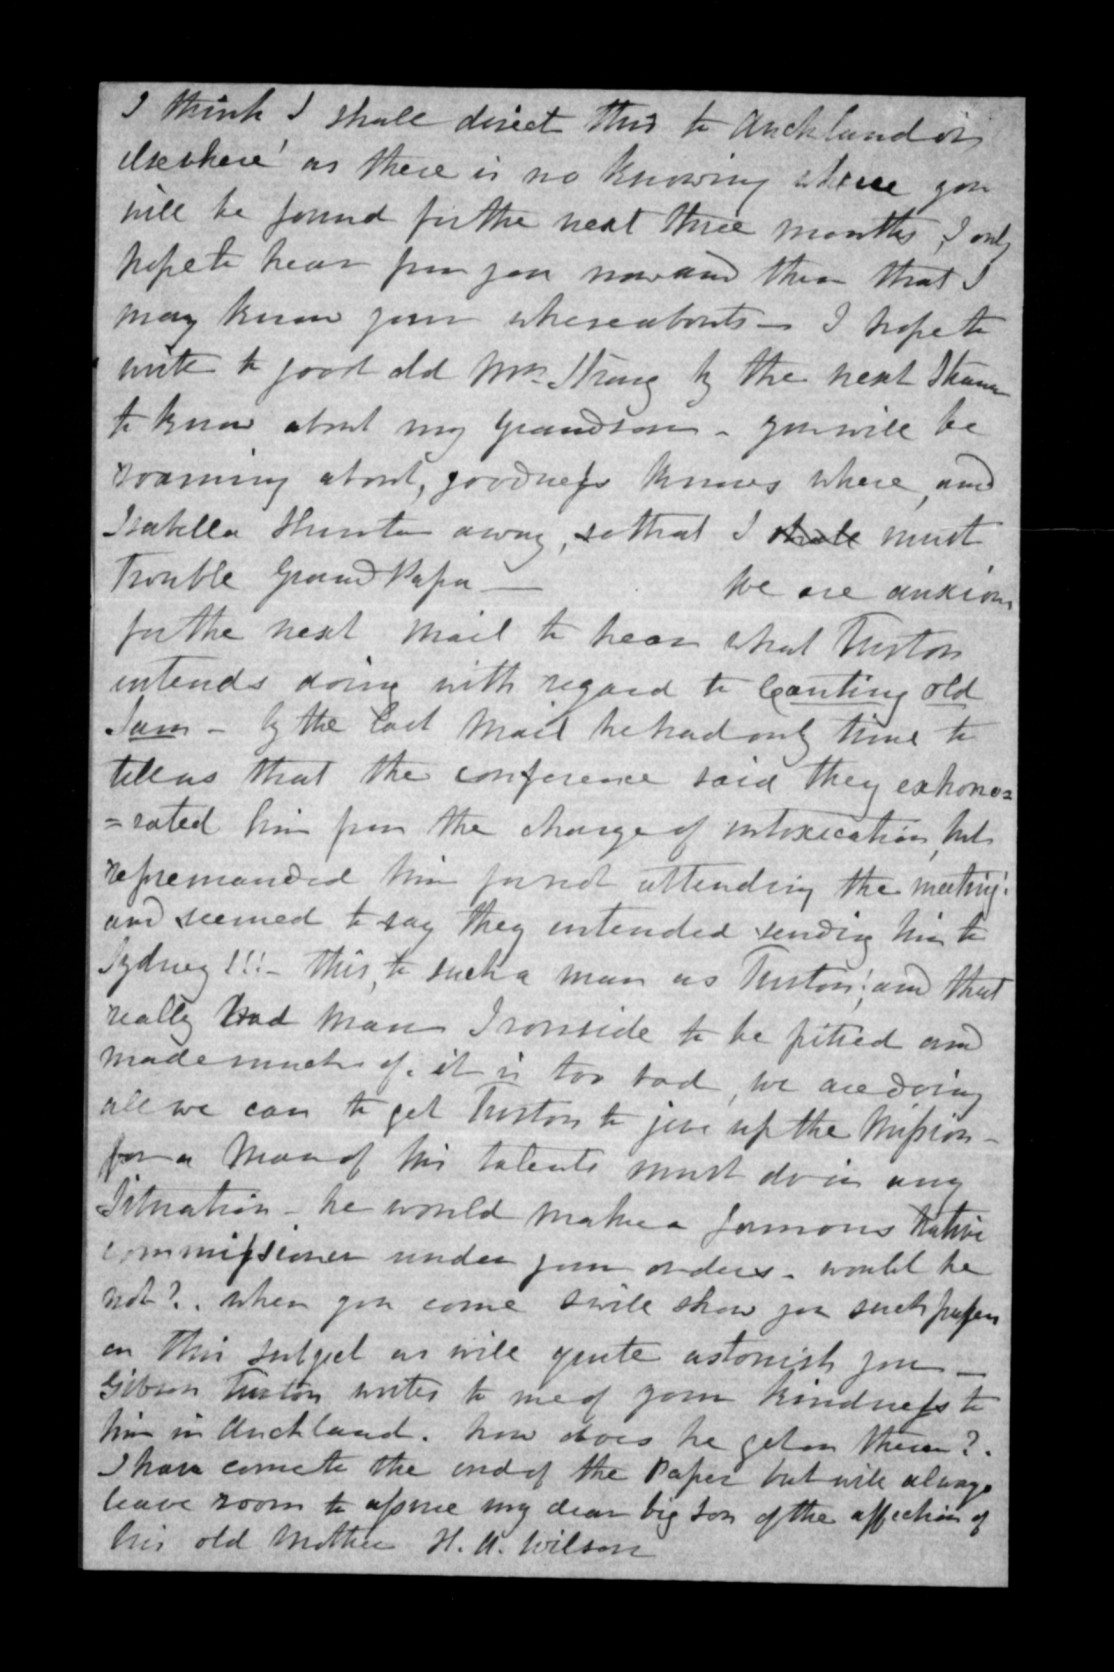 I think I shall direct this to Auckland or
elsewhere' as there is no knowing where you
will be found for the next three months, I only
hope to hear from you now and then that I
may know your whereabouts — I hope to
write to good old Mrs. Strang by the next Steamer
to know about my Grandson - you will be
roaming about, goodness knows where, and
Isabella Hunter away, so that I shall must
trouble Grand Papa — We are anxious
for the next Mail to hear what Turton
intends doing with regard to Canting old
Sam - by the last Mail he had only time to
tell us that the conference said they exhone=
=rated him from the charge of intoxication, but
repremanded him for not attending the meeting!
and seemed to say they intended sending him to
Sydney!!! - this, to such a man as Turton; and that
really bad man Ironside to be pitied and
made much of. it is too bad, we are doing
all we can to get Turton to give up the Mission -
for a Man of his talents must do in any
Situation - he would make a famous Native
commissioner under your orders - would he
not?. when you come I will show you such papers
on this subject as will quite astonish you —
Gibson Turton writes to me of your kindness to
him in Auckland. how does he get on there?.
I have come to the end of the Paper but will always
leave room to assure my dear big son of the affection of
his old Mother H. A. Wilson